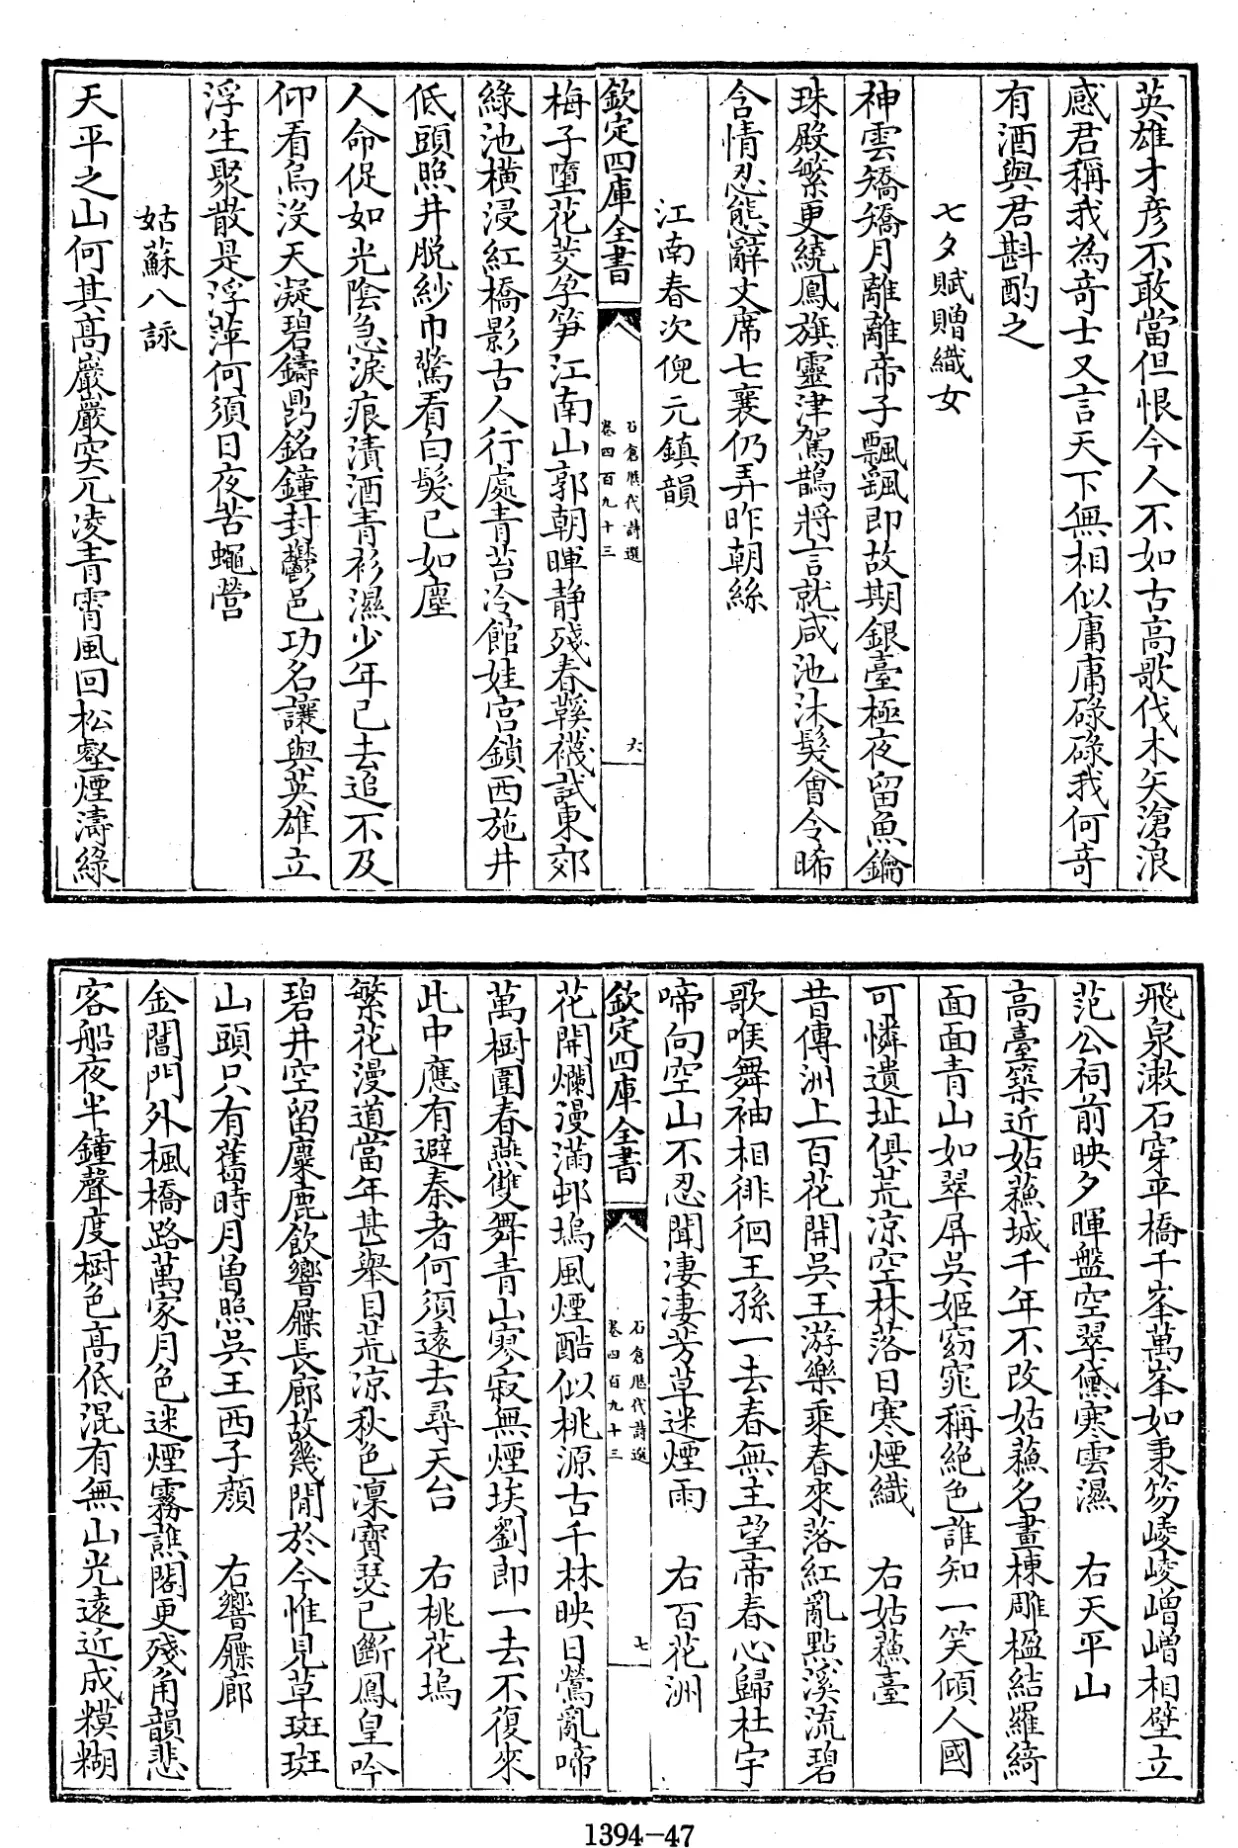 英雄才彥不敢當但恨今人不如古高歌伐木矢滄浪
感君稱我為竒士又言天下無相似庸庸碌碌我何竒
有酒與君斟酌之
七夕賦贈織女
神雲矯矯月離離帝子飄颻即故期銀臺極夜留魚鑰
珠殿繁更繞鳳旗靈津駕鵲將言就咸池沐髮會令晞
含情忍態辭文席七襄仍弄昨朝絲
江南春次倪元鎮韻
欽定四庫全書
石倉歷代詩選
卷四百九十三
六
梅子墮花茭孕笋江南山郭朝暉静殘春鞵襪試東郊
綠池橫浸紅橋影古人行處青苔冷館娃宮鎖西施井
低頭照井脱紗巾驚看白髮已如塵
人命促如光陰急淚痕漬酒青衫濕少年已去追不及
仰看烏沒天凝碧鑄鼎銘鐘封鬱邑功名讓與英雄立
浮生聚散是浮萍何須日夜苦蠅營
姑蘇八詠
天平之山何其高巖巖突兀凌青霄風回松壑煙濤綠
飛泉漱石穿平橋千峯萬峯如秉笏崚崚嶒嶒相壁立
范公祠前映夕暉盤空翠黛寒雲濕 右天平山
高臺築近姑蘓城千年不改姑蘓名畫棟雕楹結羅綺
面面青山如翠屏吳姬窈窕稱絕色誰知一笑傾人國
可憐遺址俱荒凉空林落日寒煙織 右姑蘓臺
昔傳洲上百花開吳王游樂乘春來落紅亂點溪流碧
歌喉舞袖相徘徊王孫一去春無主望帝春心歸杜宇
啼向空山不忍聞淒淒芳草迷煙雨 右百花洲
欽定四庫全書
石倉歷代詩選
卷四百九十三
七
花開爛漫滿邨塢風煙酷似桃源古千林映日鶯亂啼
萬樹圍春燕雙舞青山寥寂無煙埃劉郎一去不復來
此中應有避秦者何須遠去尋天台 右桃花塢
繁花漫道當年甚舉目荒凉秋色凜寶瑟已斷鳳皇吟
碧井空留麋鹿飲響屧長廊故幾間於今惟見草斑斑
山頭只有舊時月曾照吳王西子顏 右響屧廊
金閶門外楓橋路萬家月色迷煙霧譙閣更殘角韻悲
客船夜半鐘聲度樹色高低混有無山光遠近成糢糊
1394-47